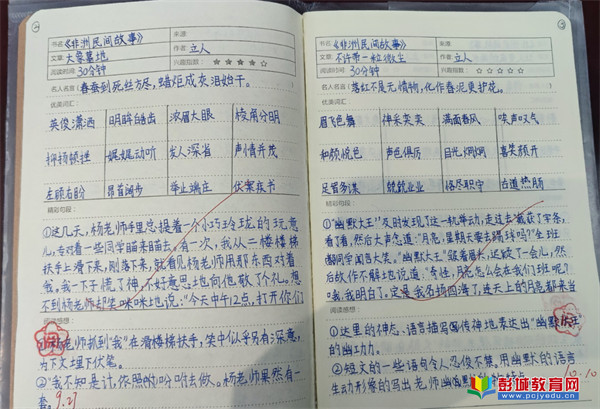 书名《非洲民间故事》 来源
文章 大象墓地 作者 立人
阅读时间 30分钟 兴趣指数 ★★★★☆
名人名言 春蚕到死丝方尽,蜡炬成灰泪始干。
优美词汇
英俊潇洒 明眸皓齿 浓眉大眼 棱角分明
抑扬顿挫 娓娓动听 发人深省 声情并茂
左顾右盼 昂首阔步 举止端庄 伏案疾书
精彩句段:
①这几天,杨老师手里总提着一个小巧玲珑的玩意
儿,专对着一些同学瞄来瞄去。有一次,我从一楼楼梯
扶手上滑下来,刚落下来,就看见杨老师用那东西对着
我,我一下子慌了神,不好意思地向他敬了个礼。想
不到杨老师却笑咪咪地说:“今天中午12点,打开你们
阅读感想:
①杨老师抓到“我”在滑楼梯扶手,笑中似乎另有深意,
为下文埋下伏笔。
②“我不知是计,依照吩咐去做。杨老师果然有一
套。 9.27
书名《非洲民间故事》 来源
文章 不许带一粒微尘 作者 立人
阅读时间 30分钟 兴趣指数
名人名言 落红不是无情物,化作春泥更护花。
优美词汇
眉飞色舞 满面春风 唉声叹气
和颜悦色 声色俱厉 目光炯炯 喜笑颜开
足智多谋 兢兢业业 恪尽职守 古道热肠
精彩句段:
①“幽默大王”及时发现了这一轨举动,走过去截获了字条,
看了看,然后大声念道:“月亮,星期天要去踢球吗?”全班
都同学闻言大笑。“幽默大王”眼着眉头,迟疑了一会儿,然
后故作不解地说道:“奇怪,月亮怎么会在我们班呢?
哦,我明白了。定是我名扬四海了,连天上的月亮都来当
阅读感想:
①这里的神态、语言描写传神地表达出“幽默大王”
的幽默力。
②短文的一些语句令人忍俊不禁。用幽默的语言
生动形象的写出老师幽默
12.10
彭城教育网
www.pcjyedu.cn